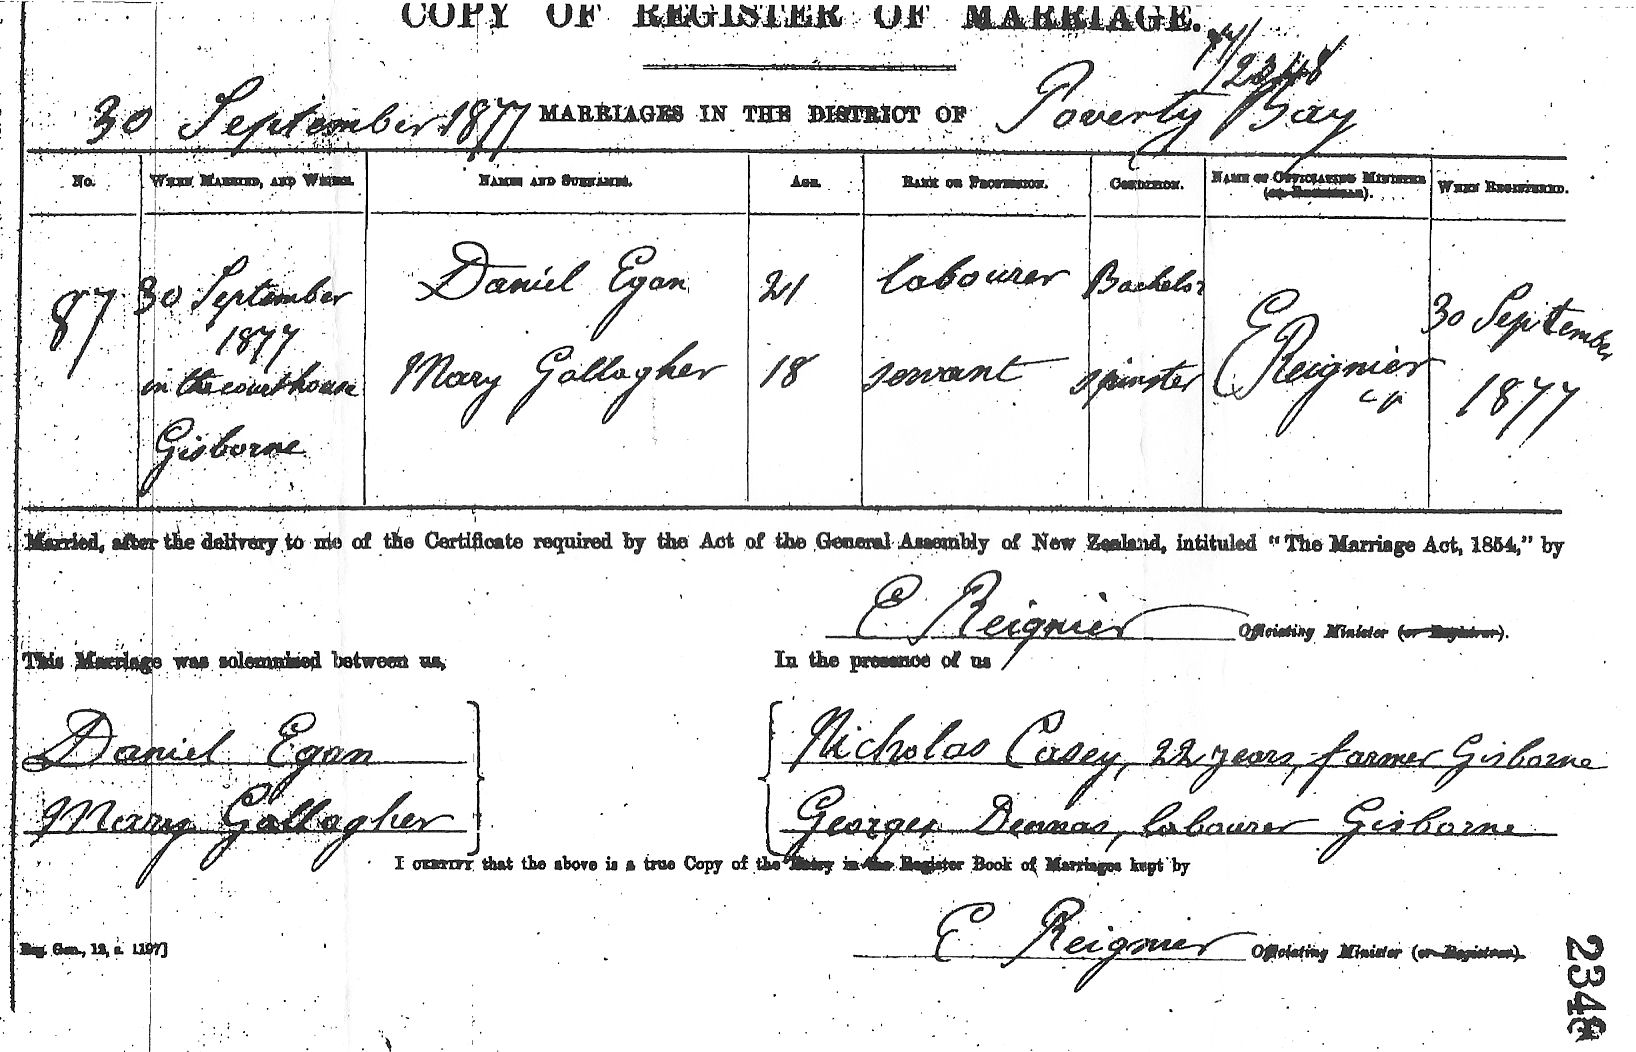 COPY OF REGISTER OF MARRIAGE.
77/2348
30 September 1877 MARRIAGES IN THE DISTRICT OF Poverty Bay
No. WHEN MARRIED, AND WHERE. NAMES AND SURNAMES. AGE. RANK OR PROFESSION. CONDITION. NAME OF OFFICIATING MINISTER (or Registrar). WHEN REGISTERED.
87
30 September
1877
in the courthouse
Gisborne
Daniel Egan 21 labourer Bachelor
Mary Gallagher 18 servant spinster
E Reignier
30 September
1877
Married, after the delivery to me of the Certificate required by the Act of the General Assembly of New Zealand, intituled "The Marriage Act, 1854," by
E Reignier Officiating Minister (or Registrar).
This Marriage was solemnized between us, In the presence of us
Daniel Egan Nicholas Casey, 22 years, farmer Gisborne
Mary Gallagher Georges, labourer Gisborne
I CERTIFY that the above is a true Copy of the Entry in the Register Book of Marriages kept by
E Reignier Officiating Minister (or Registrar).
Reg. Gen., 12, s. 1197]